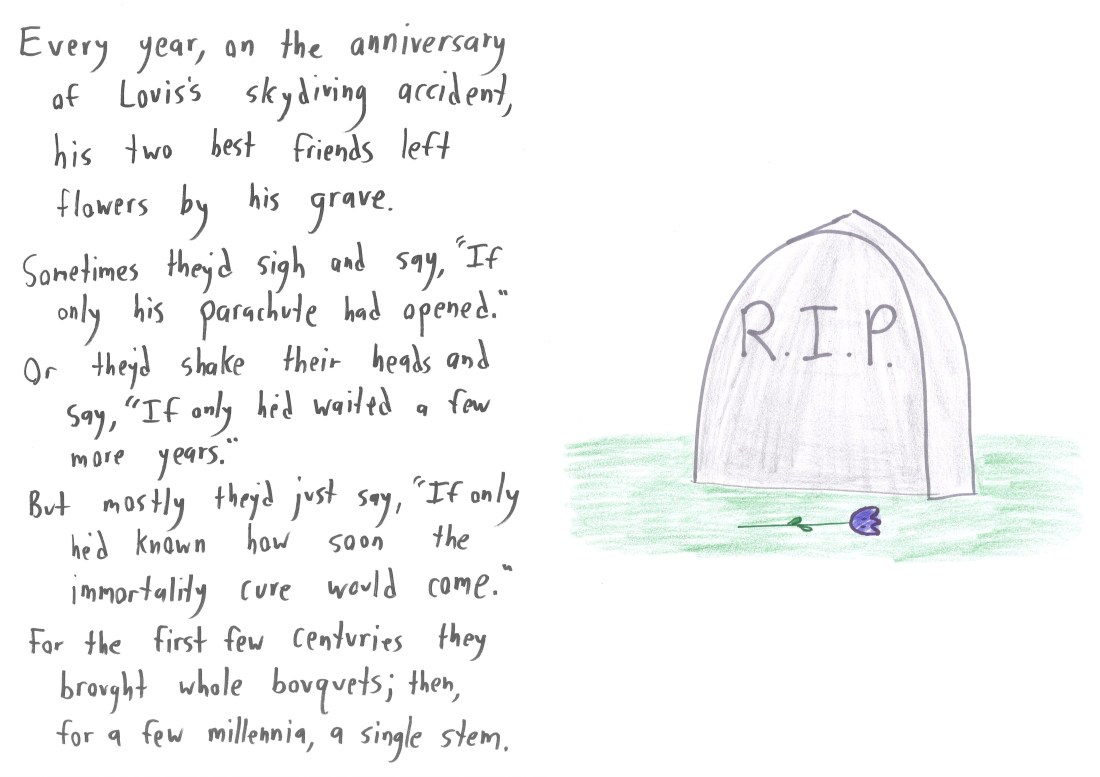 Every year, on the anniversary
of Louis's skydiving accident,
his two best friends left
flowers by his grave.
Sometimes they'd sigh and say, "If
only his parachute had opened."
Or they'd shake their heads and
say, "If only he'd waited a few
more years."
But mostly they'd just say, "If only
he'd known how soon the
immortality cure would come."
For the first few centuries they
brought whole bouquets; then,
for a few millennia, a single stem.
R.I.P.